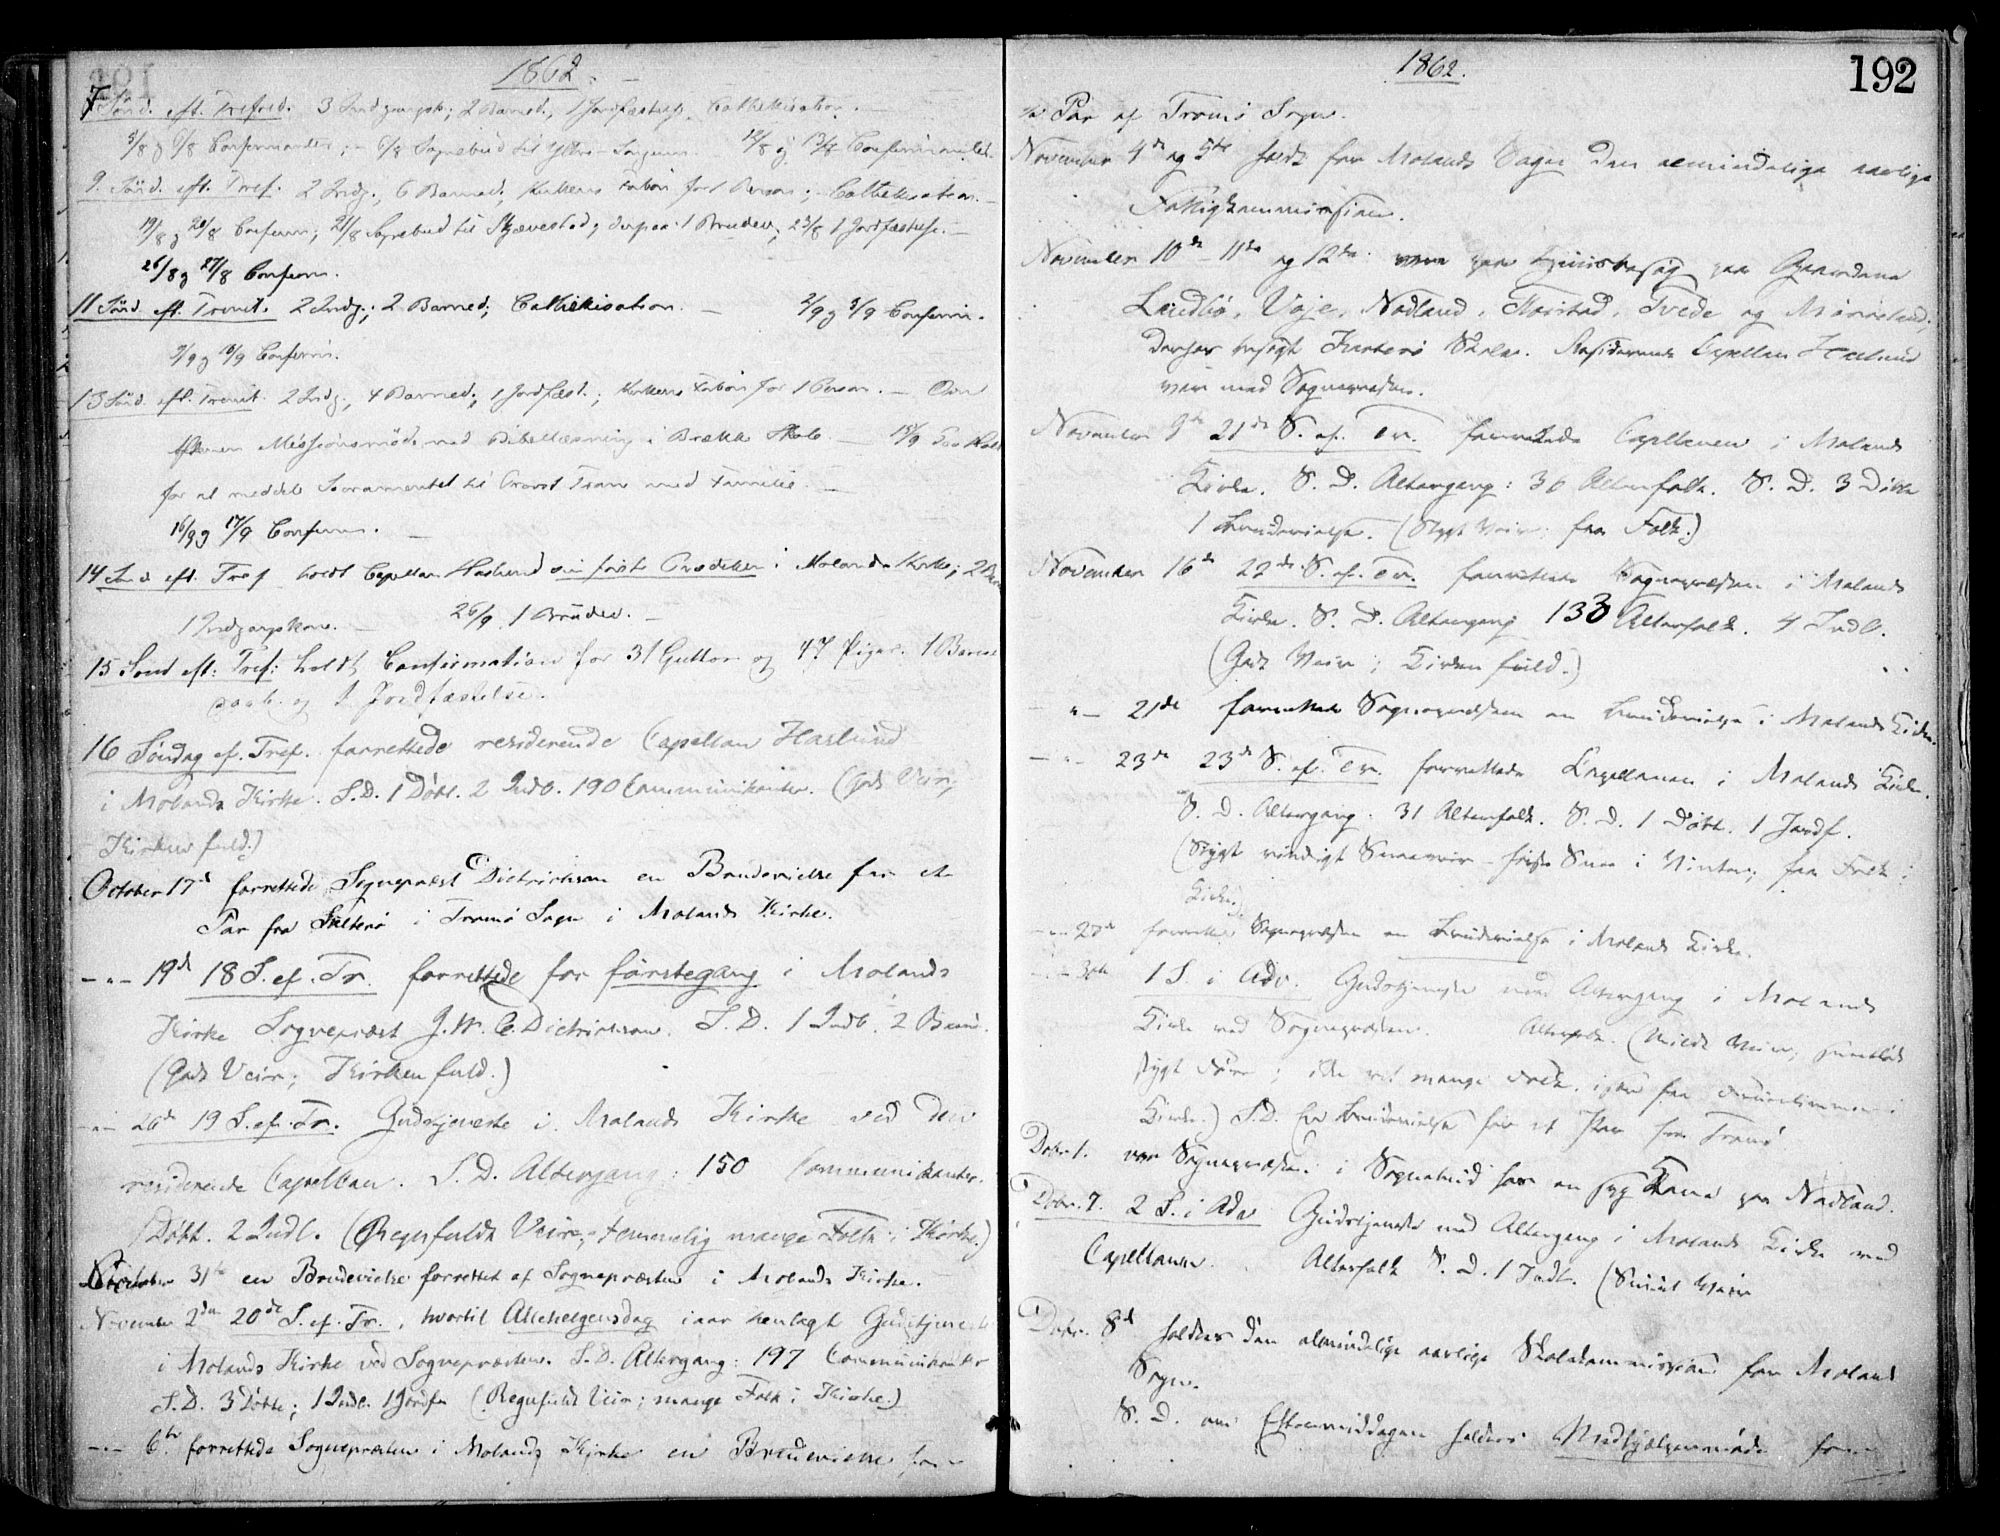 1862.
7 Sönd. eft. Trefod. 3 Indgangsk; 2 Barned., 1 Jordfæstelse, Cathekisation.
5/8 og 6/8 Confirmander; 6/8 Sognebud til 12/8 og 13/8 Confirmander.
9. Sönd. eft. Tref. 2 Indg., 6 Barned., Kirkens Forbön for 1 Person; Cathekisation.
19/8 og 20/8 Confirm; 21/8 Sognebud til Skjævestad, derpaa 1 Brudev; 23/8 1 Jordfæstelse.
26/8 og 27/8 Confirm.
11 Sönd. eft. Trenit. 2 Indg.; 2 Barned; Cathekisation. 2/9 og 3/9 Confirm.
9/9 og 10/9 Confirm.
13 Sönd. eft. Trenit. 2 Indg., 4 Barned., 1 Jordfæst.; Kirkens Forbön for 1 Person. Om
Aftenen Missionsmöde med Bibellæsning i Brække Skole.
for at meddele Sacramentet til Provst Tram med Familie.
16/9 og 17/9 Confirm.
14 Sönd. eft. Tref. holdt Capellan Haslund sin förste Prædiken i Molands Kirke; 2 Barn
1 Indgangskone. 26/9 1 Brudev.
15 Sönd eft. Tref: holdt Confirmation for 31 Gutter og 47 Piger. 1 Barne
daab og 1 Jordfæstelse.
16 Söndag ef. Tref. forrettede residerende Capellan Haslund
i Molands Kirke. S.D. 1 Döbt. 2 Indl. 190 Communikanter. (Godt Veir;
Kirken fuld.)
October 17d forrettede Sognepræst Dietrichson en Brudevielse for et
Par fra i Tromö Sogn i Molands Kirke.
-"- 19d 18 S. ef. Tr. forrettede for förstegang i Molands
Kirke Sognepræst J.W.C. Dietrichson. S.D. 1 Indl. 2 Brud.
(Godt Veir; Kirken fuld.)
-"- 26d 19 S. ef. Tr. Gudstjeneste i Molands Kirke ved den
residerende Capellan. S.D. Altergang: 150 Communikanter.
1 Döbt. 2 Indl. (Regnfuldt Veir; temmelig mange Folk i Kirke.)
October 31te en Brudevielse forrettet af Sognepræsten i Molands Kirke.
November 2den 20de S. ef. Tr., hvortil Allehelgensdag iaar henlagt Gudstjeneste
i Molands Kirke ved Sognepræsten. S.D. Altergang: 197 Communikanter
S.D. 3 Döbte; 1 Indl. 1 Jordfæ (Regnfuldt Veir; mange Folk i Kirke.)
-"- 6te forrettede Sognepræsten i Molands Kirke en Brudevielse for
1862.
192
et Par af Tromö Sogn.
November 4de og 5te holdt for Molands Sogn den almindelige aarlige
Fattigkommission.
November 10de 11te og 12te var paa Huusbesög paa Gaardene
Lundbö, Voje, Nædland, Tvede og Möruland;
Derhos besögt Skole. Residerende Capellan Haslund
var med Sognepræsten.
November 9de 21de S. ef. Tr. forrettede Capellanen i Molands
Kirke. S.D. Altergang: 36 Alterfolk. S.D. 3 Döbte
1 Brudevielse. (Stygt Veir: faa Folk.)
November 16de 22de S. ef. Tr. forrettede Sognepræsten i Molands
Kirke. S.D. Altergang 133 Alterfolk. 4 Indl.
(Godt Veir; Kirken fuld.)
-"- 21de forrettede Sognepræsten en Brudevielse i Molands Kirke.
-"- 23de 23de S. ef. Tr. forrettede Capellanen i Molands Kirke.
S.D. Altergang. 31 Alterfolk. S.D. 1 Döbt. 1 Jordf.
(Stygt vindigt Sneeveir - förste Snee i Vinter; faa Folk i
Kirke.)
-"- 27de forrettede Sognepræsten en Brudevielse i Molands Kirke.
-"- 30te 1 S. i Adv. Gudstjeneste med Altergang i Molands
Kirke ved Sognepræsten. Alterfolk. (Mildt Veir;
stygt Före; ikke ret mange Folk, især faa Fruentimmer i
Kirke.) S.D. En Brudevielse for et Par fra Tromö
Dcbr 1. var Sognepræsten i Sognebud hos en syg Kone paa Nædland.
Dcbr. 7. 2 S. i Adv Gudstjeneste med Altergang i Molands Kirke ved
Capellanen. Alterfolk S.D. 1 Indl. (Smukt Veir
Dcbr. 8de holdtes den almindelige aarlige Skolekommission for Molands
Sogn.
S.D. om Eftermiddagen holdtes Medhjælpermöde for